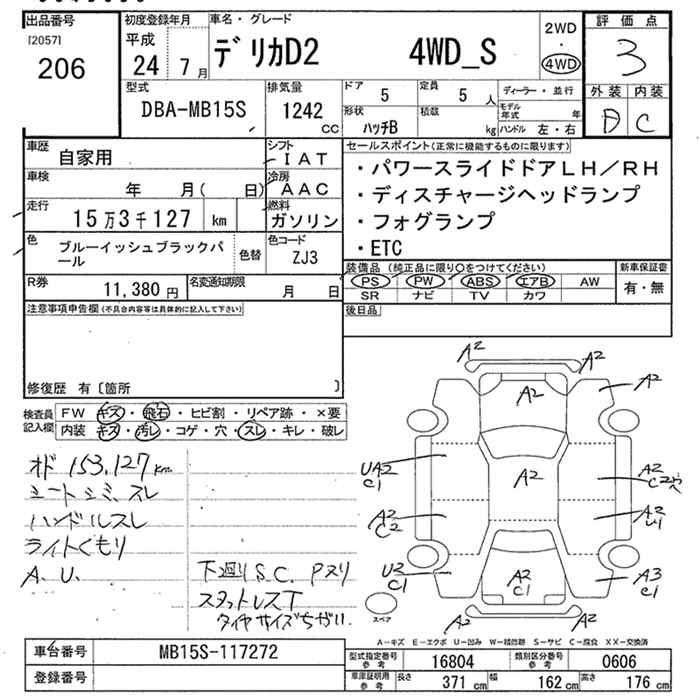 出品番号
[2057]
206
初度登録年月
平成
24 7月
車名・グレード
デリカD2 4WD_S
2WD
・
4WD
評価点
3
外装 内装
D C
型式
DBA-MB15S
排気量
1242
CC
ドア
5
定員
5人
ディーラー・並行
形状
ハッチB
積載
kg
モデル年式 年
ハンドル 左・右
車歴
自家用
シフト
IAT
車検
年 月( 日)
冷房
AAC
走行
15万3千127 km
燃料
ガソリン
色
ブルーイッシュブラックパール
色替
色コード
ZJ3
R券
11,380円
名変通知期限
月 日
セールスポイント(正常に機能するものに限ります)
・パワースライドドアLH/RH
・ディスチャージヘッドランプ
・フォグランプ
・ETC
装備品 (純正品に限り〇をつけてください)
新車保証書
PS PW ABS エアB AW
SR ナビ TV カワ
有・無
後日品
注意事項申告欄(不具合内容等は具体的に記入して下さい)
修復歴 有〔箇所 〕
検査員記入欄
FW キズ・飛石・ヒビ割・リペア跡・×要
内装 キズ・汚レ・コゲ・穴・スレ・キレ・破レ
オド 153,127km
シートシミ、スレ
ハンドルスレ
ライトくもり
A.U.
下廻りS.C. Pヌリ
スタットレスT
タイヤサイズちがい.
A2 A2
A2
A2
UA2
C1
A2
A2
A2
C2
A2
U2
C1
A2
C1
A3
C1
A2 A2
スペア
A-キズ E-エクボ U-凹み W-補修跡 S-サビ C-腐食 XX-交換済
車台番号
MB15S-117272
登録番号
型式指定番号
参考
16804
類別区分番号
参考
0606
車庫証明用
参考
長さ 371cm
幅 162cm
高さ 176cm